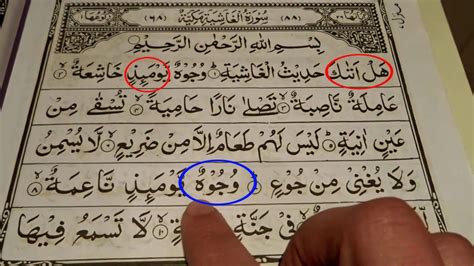 (٨٨) سُوْرَةُ الْغَاشِيَةِ مَكِّيَّةٌ (٦٨)
بِسْمِ اللهِ الرَّحْمٰنِ الرَّحِيْمِ
هَلْ اَتٰىكَ حَدِيْثُ الْغَاشِيَةِ ۱ وُجُوْهٌ يَّوْمَىِٕذٍ خَاشِعَةٌ ۲
عَامِلَةٌ نَّاصِبَةٌ ۳ تَصْلٰى نَارًا حَامِيَةً ۴ تُسْقٰى مِنْ
عَيْنٍ اٰنِيَةٍ ۵ لَيْسَ لَهُمْ طَعَامٌ اِلَّا مِنْ ضَرِيْعٍ ۶ لَّا يُسْمِنُ
وَلَا يُغْنِيْ مِنْ جُوْعٍ ۷ وُجُوْهٌ يَّوْمَىِٕذٍ نَّاعِمَةٌ ۸
فِيْ جَنَّةٍ ۱۰ لَّا تَسْمَعُ فِيْهَا